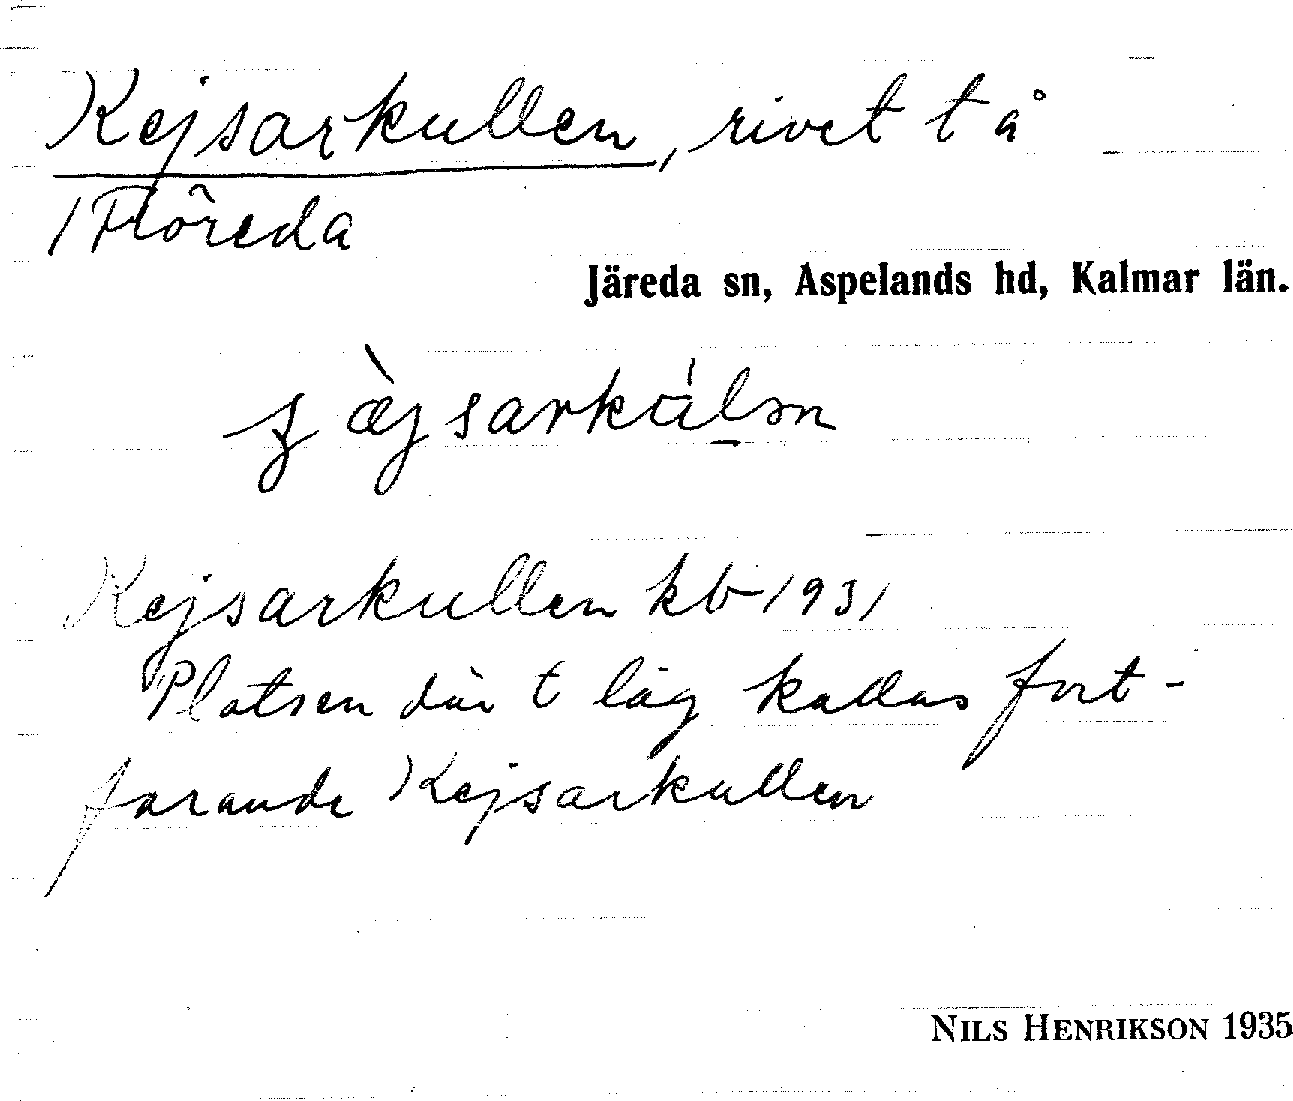 Kejsarkullen, rivet t å
1 Flöreda
Järeda sn, Aspelands hd, Kalmar län.
Kejsarkullen kb 1931
Platsen där t låg kallas fort-
farande Kejsarkullen
NILS HENRIKSON 1935